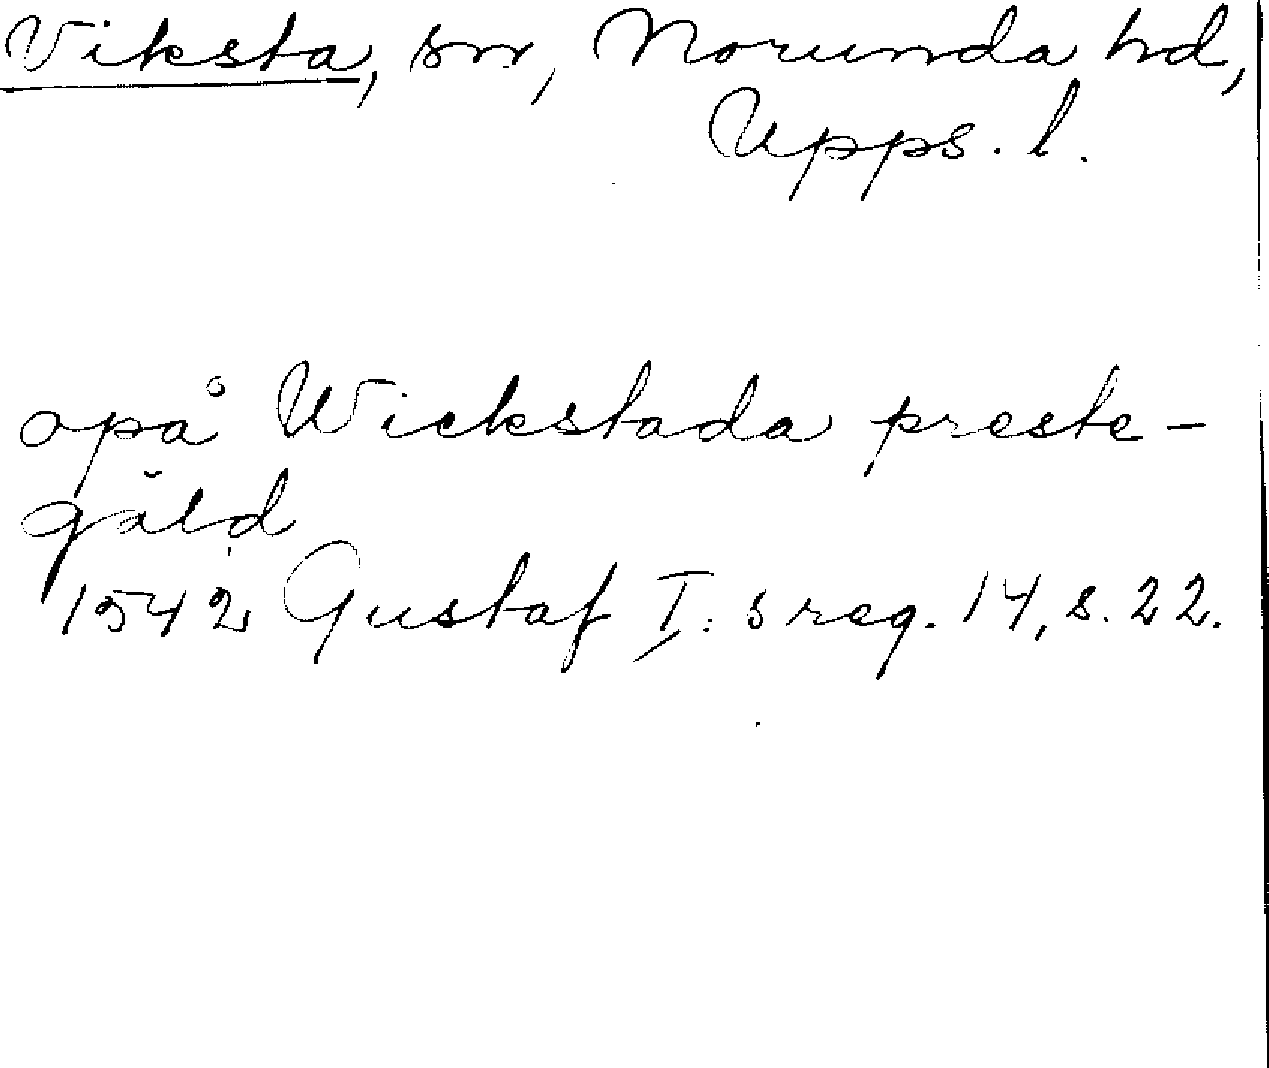 Viksta, sn, Norunda hd,
Upps. l.
opå Wickstada preste-
gäld
1542 Gustaf I:s reg. 14, s. 22.